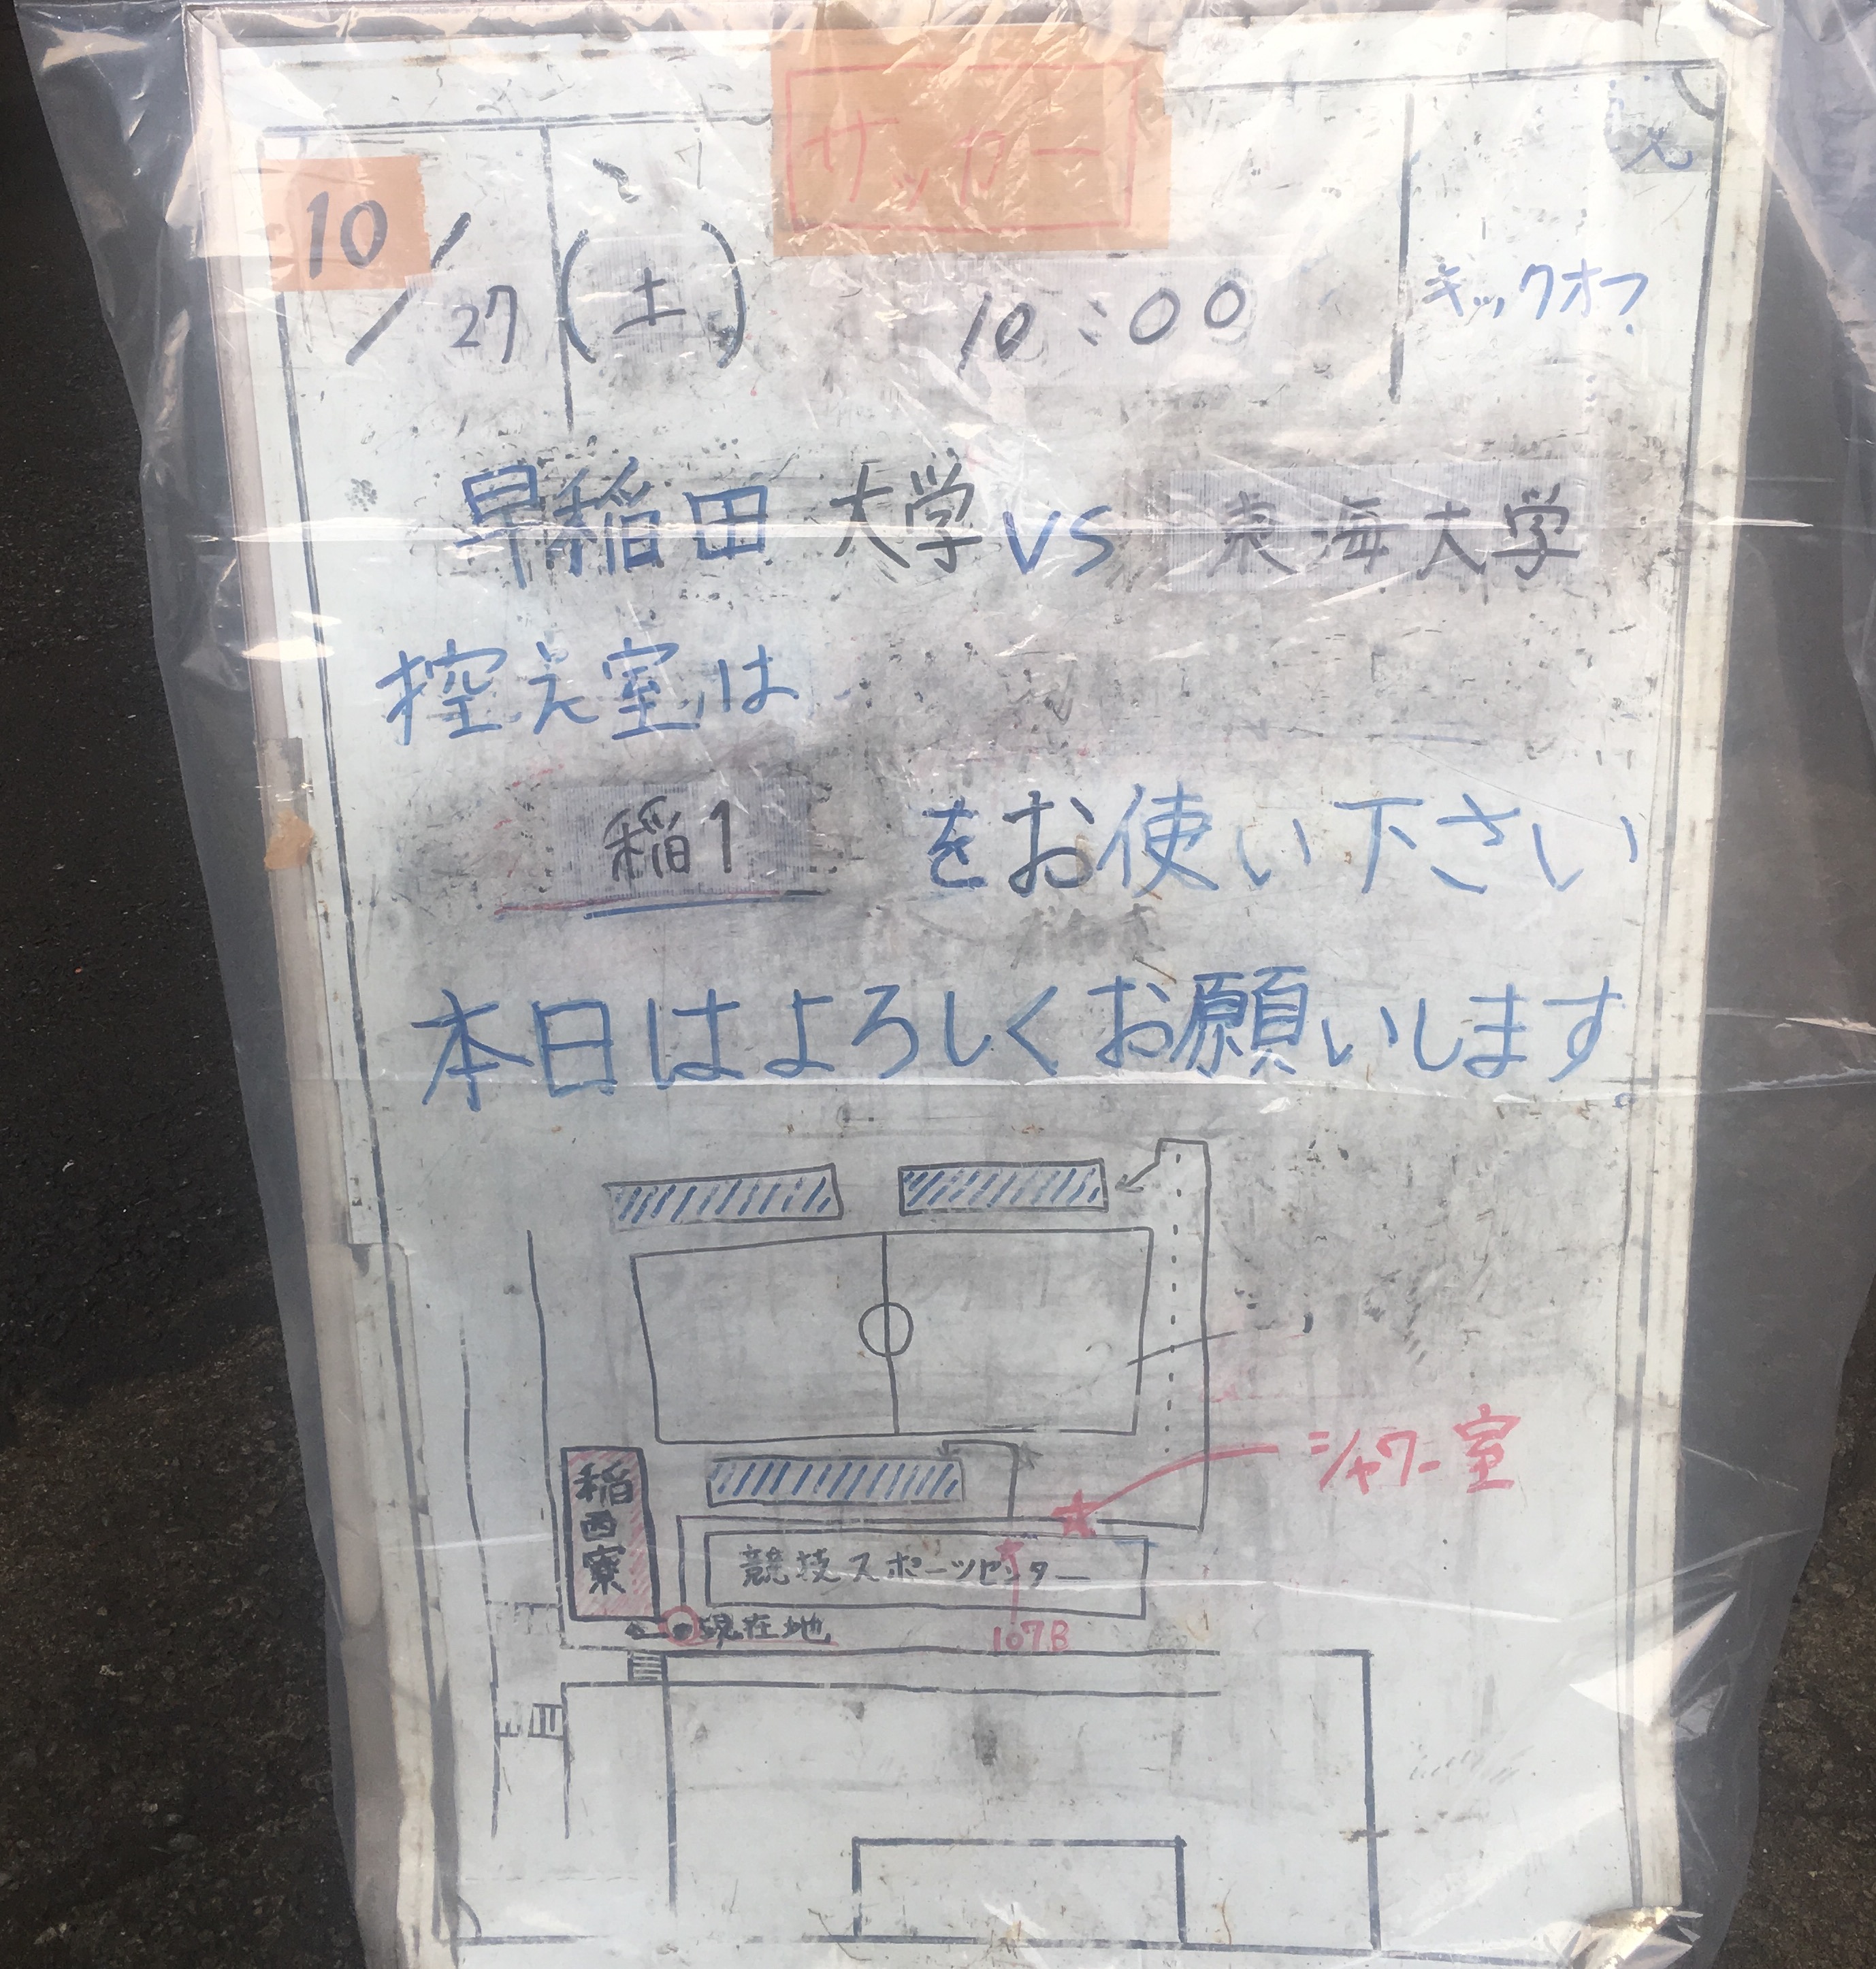 サッカー
10/27(土) 10:00 キックオフ
早稲田大学 vs 東海大学
控え室は
稲1 をお使い下さい
本日はよろしくお願いします。
シャワー室
稲西寮
競技スポーツセンター
現在地
107B